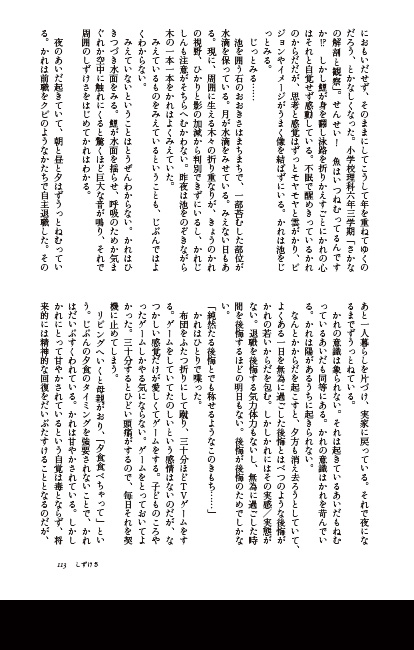 におもいだせず、そのままにしてこうして年を重ねてゆくの
だろう、とかなしくなった。小学校理科六年三学期「さかな
の解剖と観察」。せんせい！　魚はいつねむってるんです
か⁉　しかし鯉が身を翻し泳路を折りかえすごとにかれの心
はそれと自覚せず感動している。不眠で醒めきっているかれ
のからだだが、思考と感覚はずっとモヤモヤと雲がかり、ビ
ジョンやイメージがうまく像を結ばずにいる。かれは池をじ
っとみる。
じっとみる……
池を囲う石のおおきさはまちまちで、一部苔むした部位が
水滴を保っている。月が水滴をみせている。みえない日もあ
る。現に、周囲に生える木々の折り重なりが、きょうのかれ
の視野、ひかりと影の加減から判別できずにいるし、かれじ
しんも注意がそちらへむかわない。昨夜は池をのぞきながら
木の一本一本をかれはよくみていた。
みえているものをみえているということも、じぶんではよ
くわからない。
みえていないということはとうぜんわからない。かれはひ
きつづき水面をみる。鯉が水面を揺らせ、呼吸のためか気ま
ぐれか空中に触れにくると驚くほど巨大な音が鳴り、それで
周囲のしずけさをはじめてかれはわかる。
夜のあいだ起きていて、朝と昼と夕はずうっとねむってい
る。かれは前職をクビのようなかたちで自主退職した。その
あと一人暮らしを片づけ、実家に戻っている。それで夜にな
るまでずうっとねている。
かれの意識は象られない。それは起きているあいだもねむ
っているあいだも同等にある。かれの意識はかれを苛んでい
る。かれは陽があるうちに起きられない。
なんとかからだを起こすと、夕方も消え去ろうとしていて、
よくある一日を無為に過ごした後悔とはべつのような後悔が
かれの若いからだを包む。しかしかれにはその実感／実態が
ない。退職を後悔する気力体力もないし、無為に過ごした時
間を後悔するほどの明日もない。後悔が後悔のためでしかな
い。
「純然たる後悔とでも称せるようなこのきもち……」
かれはひとりで喋った。
布団をふたつ折りにして蹴り、三十分ほどTVゲームをす
る。ゲームをしていてたのしいという感情はないのだが、な
つかしい感覚だけが愛しくてゲームをする。子どものころや
ったゲームしかやる気にならない。ゲームをとっておいてよ
かった。三十分するとひどい頭痛がするので、毎日それを契
機に止めてしまう。
リビングへいくと母親がおり、「夕食食べちゃって」とい
う。じぶんの夕食のタイミングを強要されないことで、かれ
はだいぶすくわれている。かれは甘やかされている。しかし
かれにとって甘やかされているという自覚は毒とならず、将
来的には精神的な回復をだいぶたすけることとなるのだが、
113　しずけさ